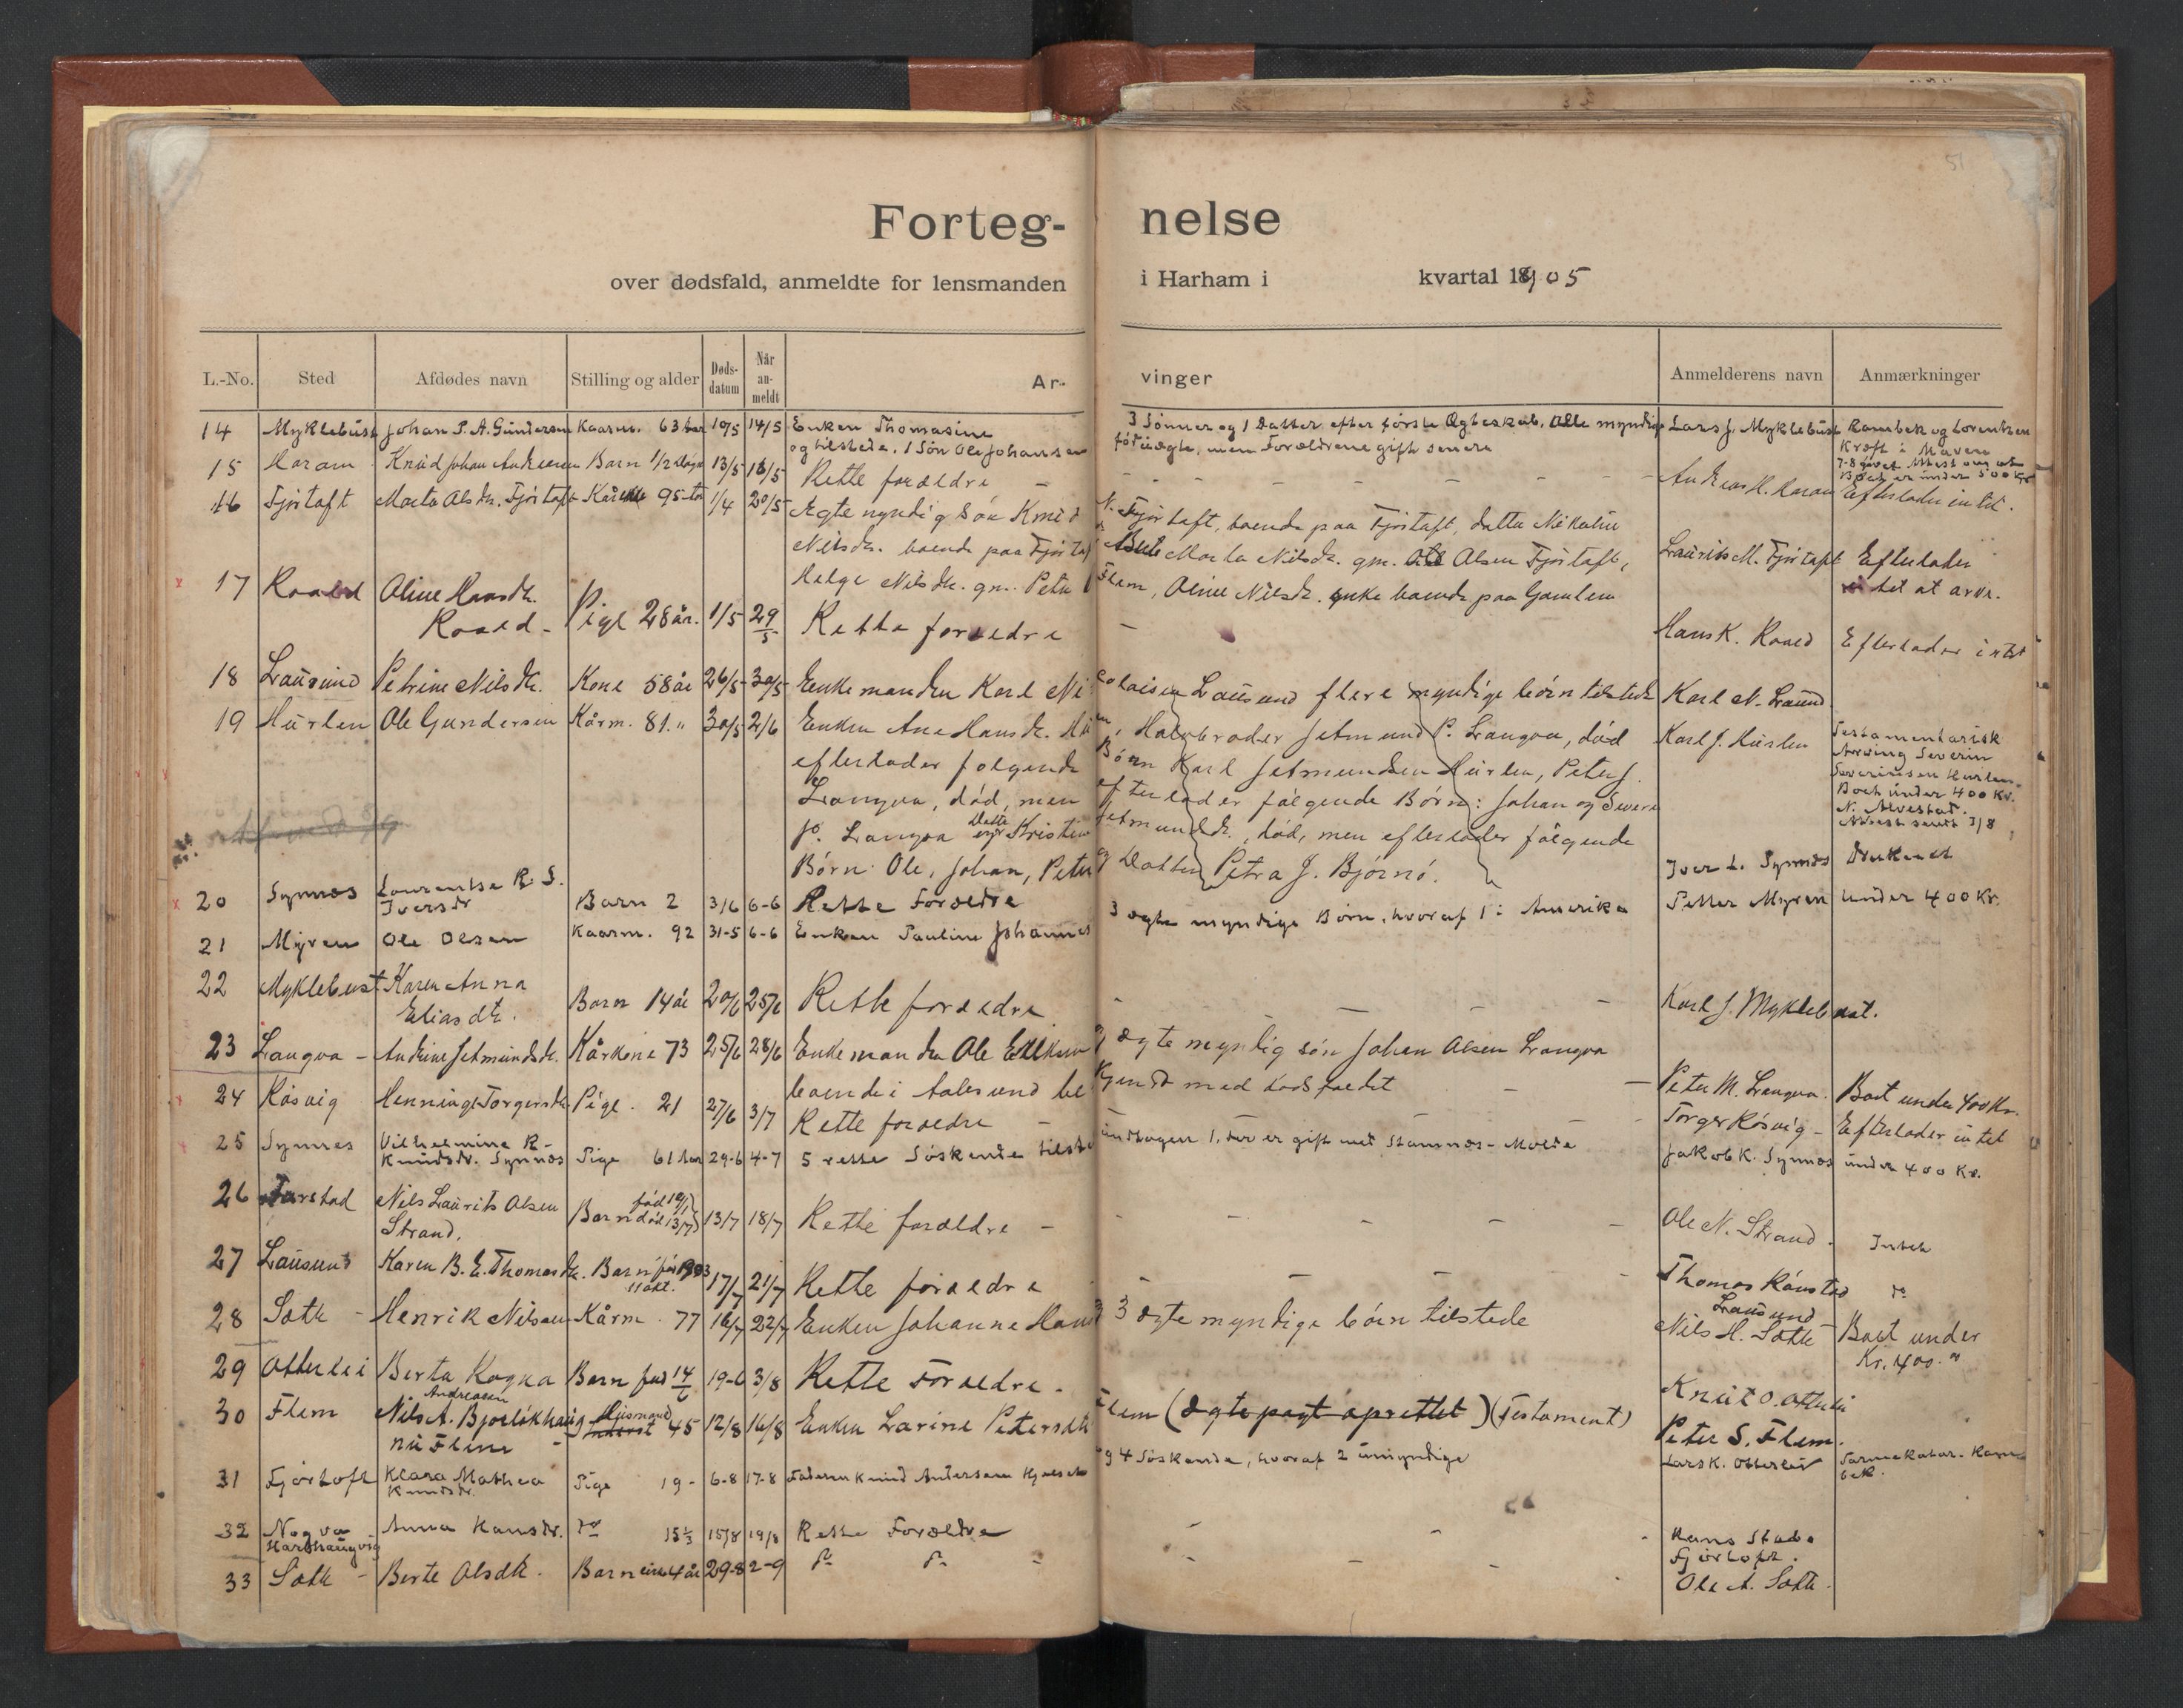 51
Forteg- nelse
over dødsfald, anmeldte for lensmanden i Harham i kvartal 1905
L.-No. Sted Afdødes navn Stilling og alder Døds-datum Når an-meldt Ar- vinger Anmelderens navn Anmærkninger
14 Myklebust Johan P. A. Gundersen Kaarm. 63 aar 10/5 14/5 Enken Thomasine 3 Sønner og 1 Datter efter første Ægteskab, Alle myndige Lars J. Myklebust Rambek og Lorentzen
og tilstede. 1 Søn Ole Johansen født uægte, men Forældrene gift senere Kræft i Maven
7-8 givet Attest om at
Boet er under 500 Kr.
15 Haram Knud Johan Andreasen Barn 1/2 13/5 18/5 Rette forældre — Andreas H. Haram Efterlader intet.
16 Fjørtoft Marta Olsdtr. Fjørtoft 95 1/4 20/5 Ægte myndig Søn Knud N. Fjørtoft, boende paa Fjørtoft, datter Nikoline
Nilsdtr. boende paa Fjørtoft Marta Nilsdtr. gm. Olsen Fjørtoft, Laurits M. Fjørtoft Efterlader
Helge Nilsdtr. gm. Peter Flem, Oline Nilsdtr. enke boende paa Gamlem intet at arve.
17 Roald Oline Hansdtr.
Roald - Pige 28 år. 1/5 29/5 Rette forældre — Hans K. Roald Efterlader intet
18 Lausund Petrine Nilsdtr. Kone 58 år 26/5 30/5 Enkemanden Karl Nicolaisen Lausund flere myndige børn tilstede Karl N. Lausund
19 Hurlen Ole Gundersen Kårm. 81 " 30/5 2/6 Enken Ane Hansdtr. Halvbroder Jetmund P. Longva, død Karl J. Hurlen Testamentarisk
efterlader følgende Børn Karl Jetmundsen Hurlen, Peter J. Arving Severin
Severinsen Hurlen.
Longva, død, men efterlader følgende Børn: Johan og Boet under 400 Kr.
N. Alvestad.
Attest sendt 3/8
P. Longva Datter Kristine Jetmundsdtr., død, men efterlader følgende
Børn: Ole, Johan, Peter og Datter Petra J. Bjørnø.
20 Synnes Laurentse R. S.
Iversdr Barn 2 3/6 6-6 Rette Forældre Iver L. Synnes
21 Myren Ole Olsen Kaarm. 92 31-5 6-6 Enken Pauline Johannes 3 ægte myndige Børn, hvoraf 1 i Amerika Petter Myren under 400 Kr.
22 Myklebust Karen Anna
Eliasdtr. Barn 14 år 20/6 25/6 Rette forældre - — — - Karl J. Myklebust.
23 Longva - Andrine Jetmundsdtr. Kårkone 73 25/6 28/6 Enkemanden Ole Eriksen 1 ægte myndig søn Johan Olsen Longva
boende i Aalesund bekjendt med dødsfaldet — Peter M. Longva. Boet under 400 Kr.
24 Røsvig Henninge Torgersdtr. Pige. 21 27/6 3/7 Rette forældre — Torger Røsvig - Efterlader intet
25 Synnes Vilhelmine R-
Knudsdr. Synnes Pige 61 aar 29-6 4-7 5 rette Søskende tilstede undtagen 1, der er gift med Stamnæs - Molde Jakob K. Synnes under 400 Kr.
26 Farstad Nils Laurits Olsen
Strand. Barn død 13/7 13/7 18/7 Rette forældre - - - - - Ole N. Strand. Intet
27 Lausund Karen B. E. Thomasdtr. Barn født 1903
11 okt. 17/7 21/7 Rette forældre - — — - Thomas Rønstad
Lausund do
28 Søtte - Henrik Nilsen Kårm. 77 16/7 22/7 Enken Johanne Hans 3 ægte myndige børn tilstede Nils H. Søtte - Boet under
Kr. 400.
29 Otterlei Berta Barn født 14/6 19-6 3/8 Rette forældre. Knut O. Otterlei
30 Flem Nils A. Andreasen Bjørløkhaug
nu Flem - Husmand Inderst 45 12/8 16/8 Enken Larine Petersdtr Flem (Ægtepagt oprettet) (Testament) Peter S. Flem.
31 Fjørtoft Klara Mathea
Knudsdr. Pige 19 - 6-8 17-8 Faderen Knud Andersen og 4 Søskende, hvoraf 2 umyndige Lars K. Otterlei
32 Nogva
Anna Hansdr. do 15 1/2 15/8 19/8 Rette Forældre - - - Hans Stad
Fjørtoft.
33 Søtte - Berte Olsdtr. Barn cirka 4 år 29-8 2-9 do do - - - - Ole A. Søtte.